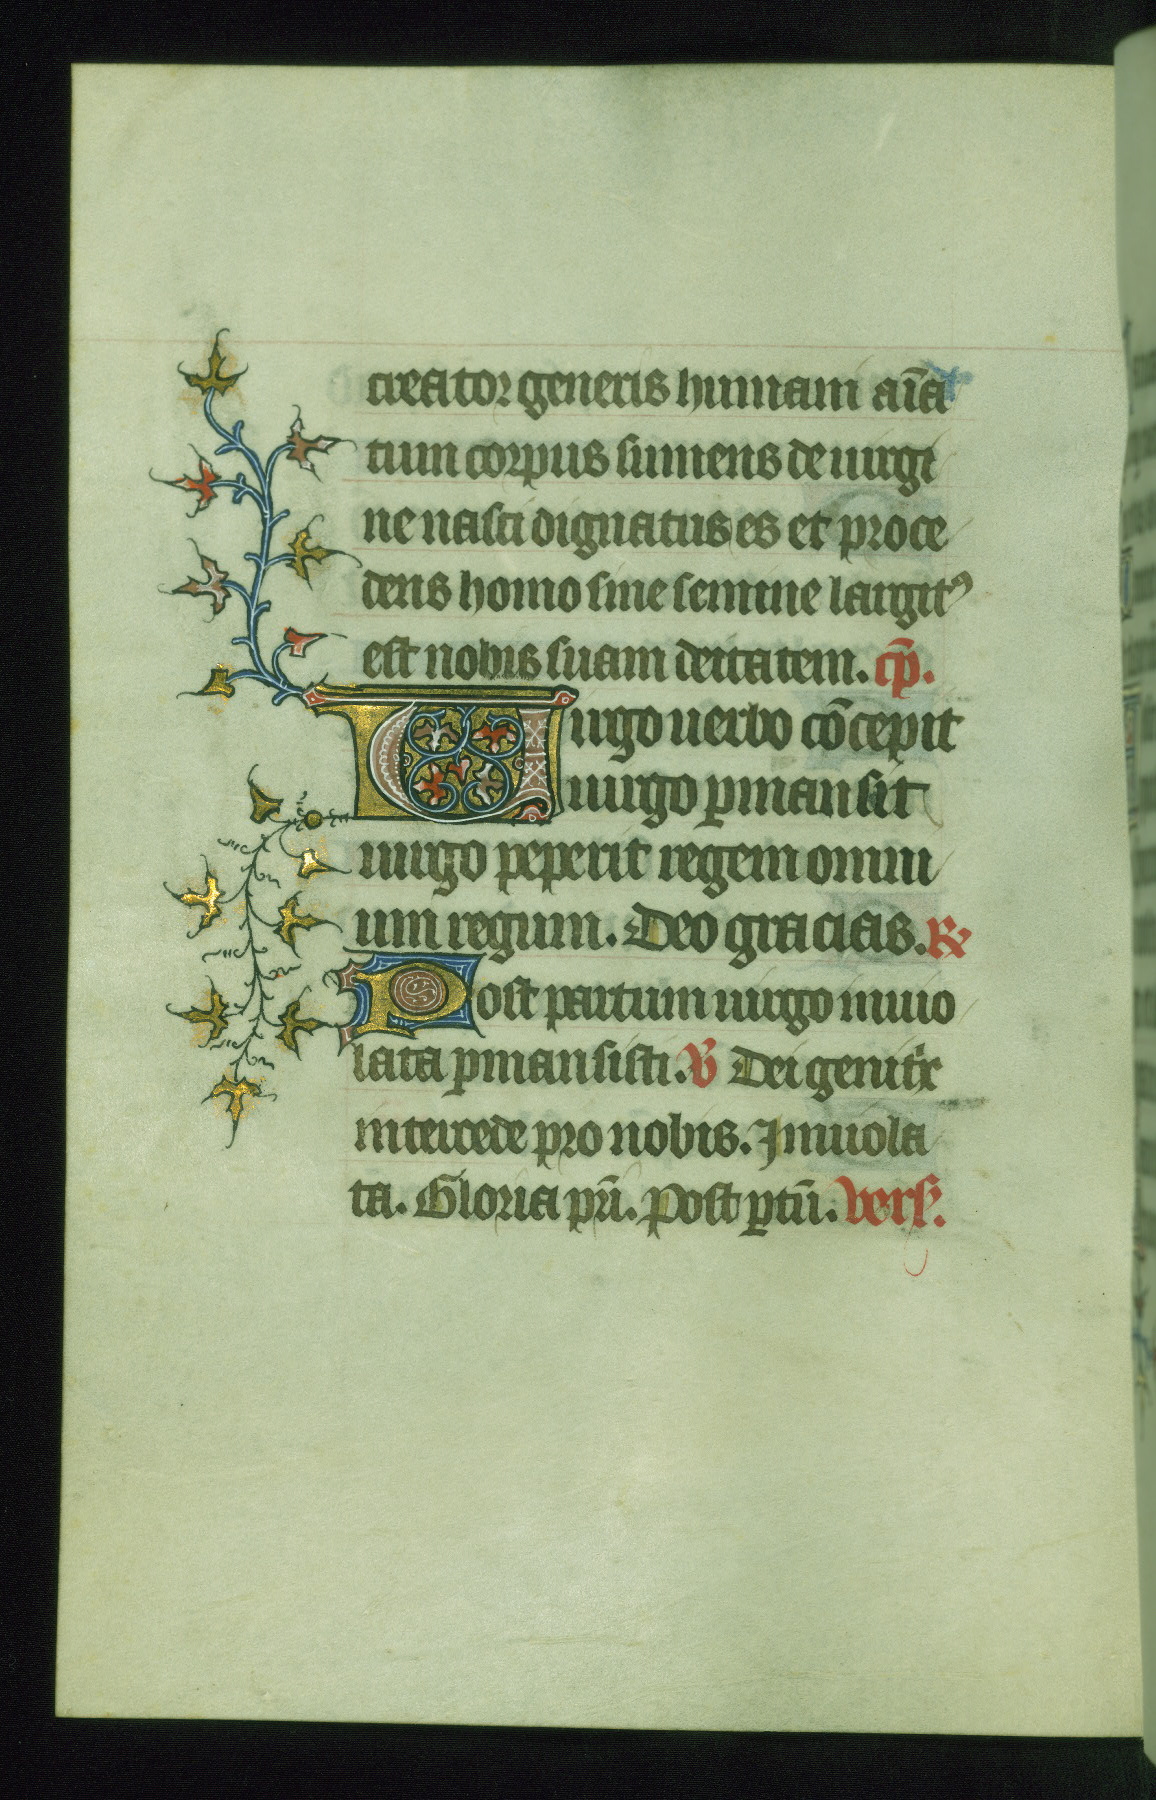 creator generis humani aīa
tum corpus sumens de uirgi
ne nasci dignatus es et proce
dens homo sine semine largitꝰ
est nobis suam deitatem. cp̄.
Uirgo uerbo cōcepit
uirgo ꝑmansit
uirgo peperit regem omni
um regum. Deo gracias. ℟
Post partum uirgo inuio
lata ꝑmansisti. ℣ Dei genitᷤx
intercede pro nobis. Inuiola
ta. Gloria pr̄i. Post ꝑtū. vers̾.